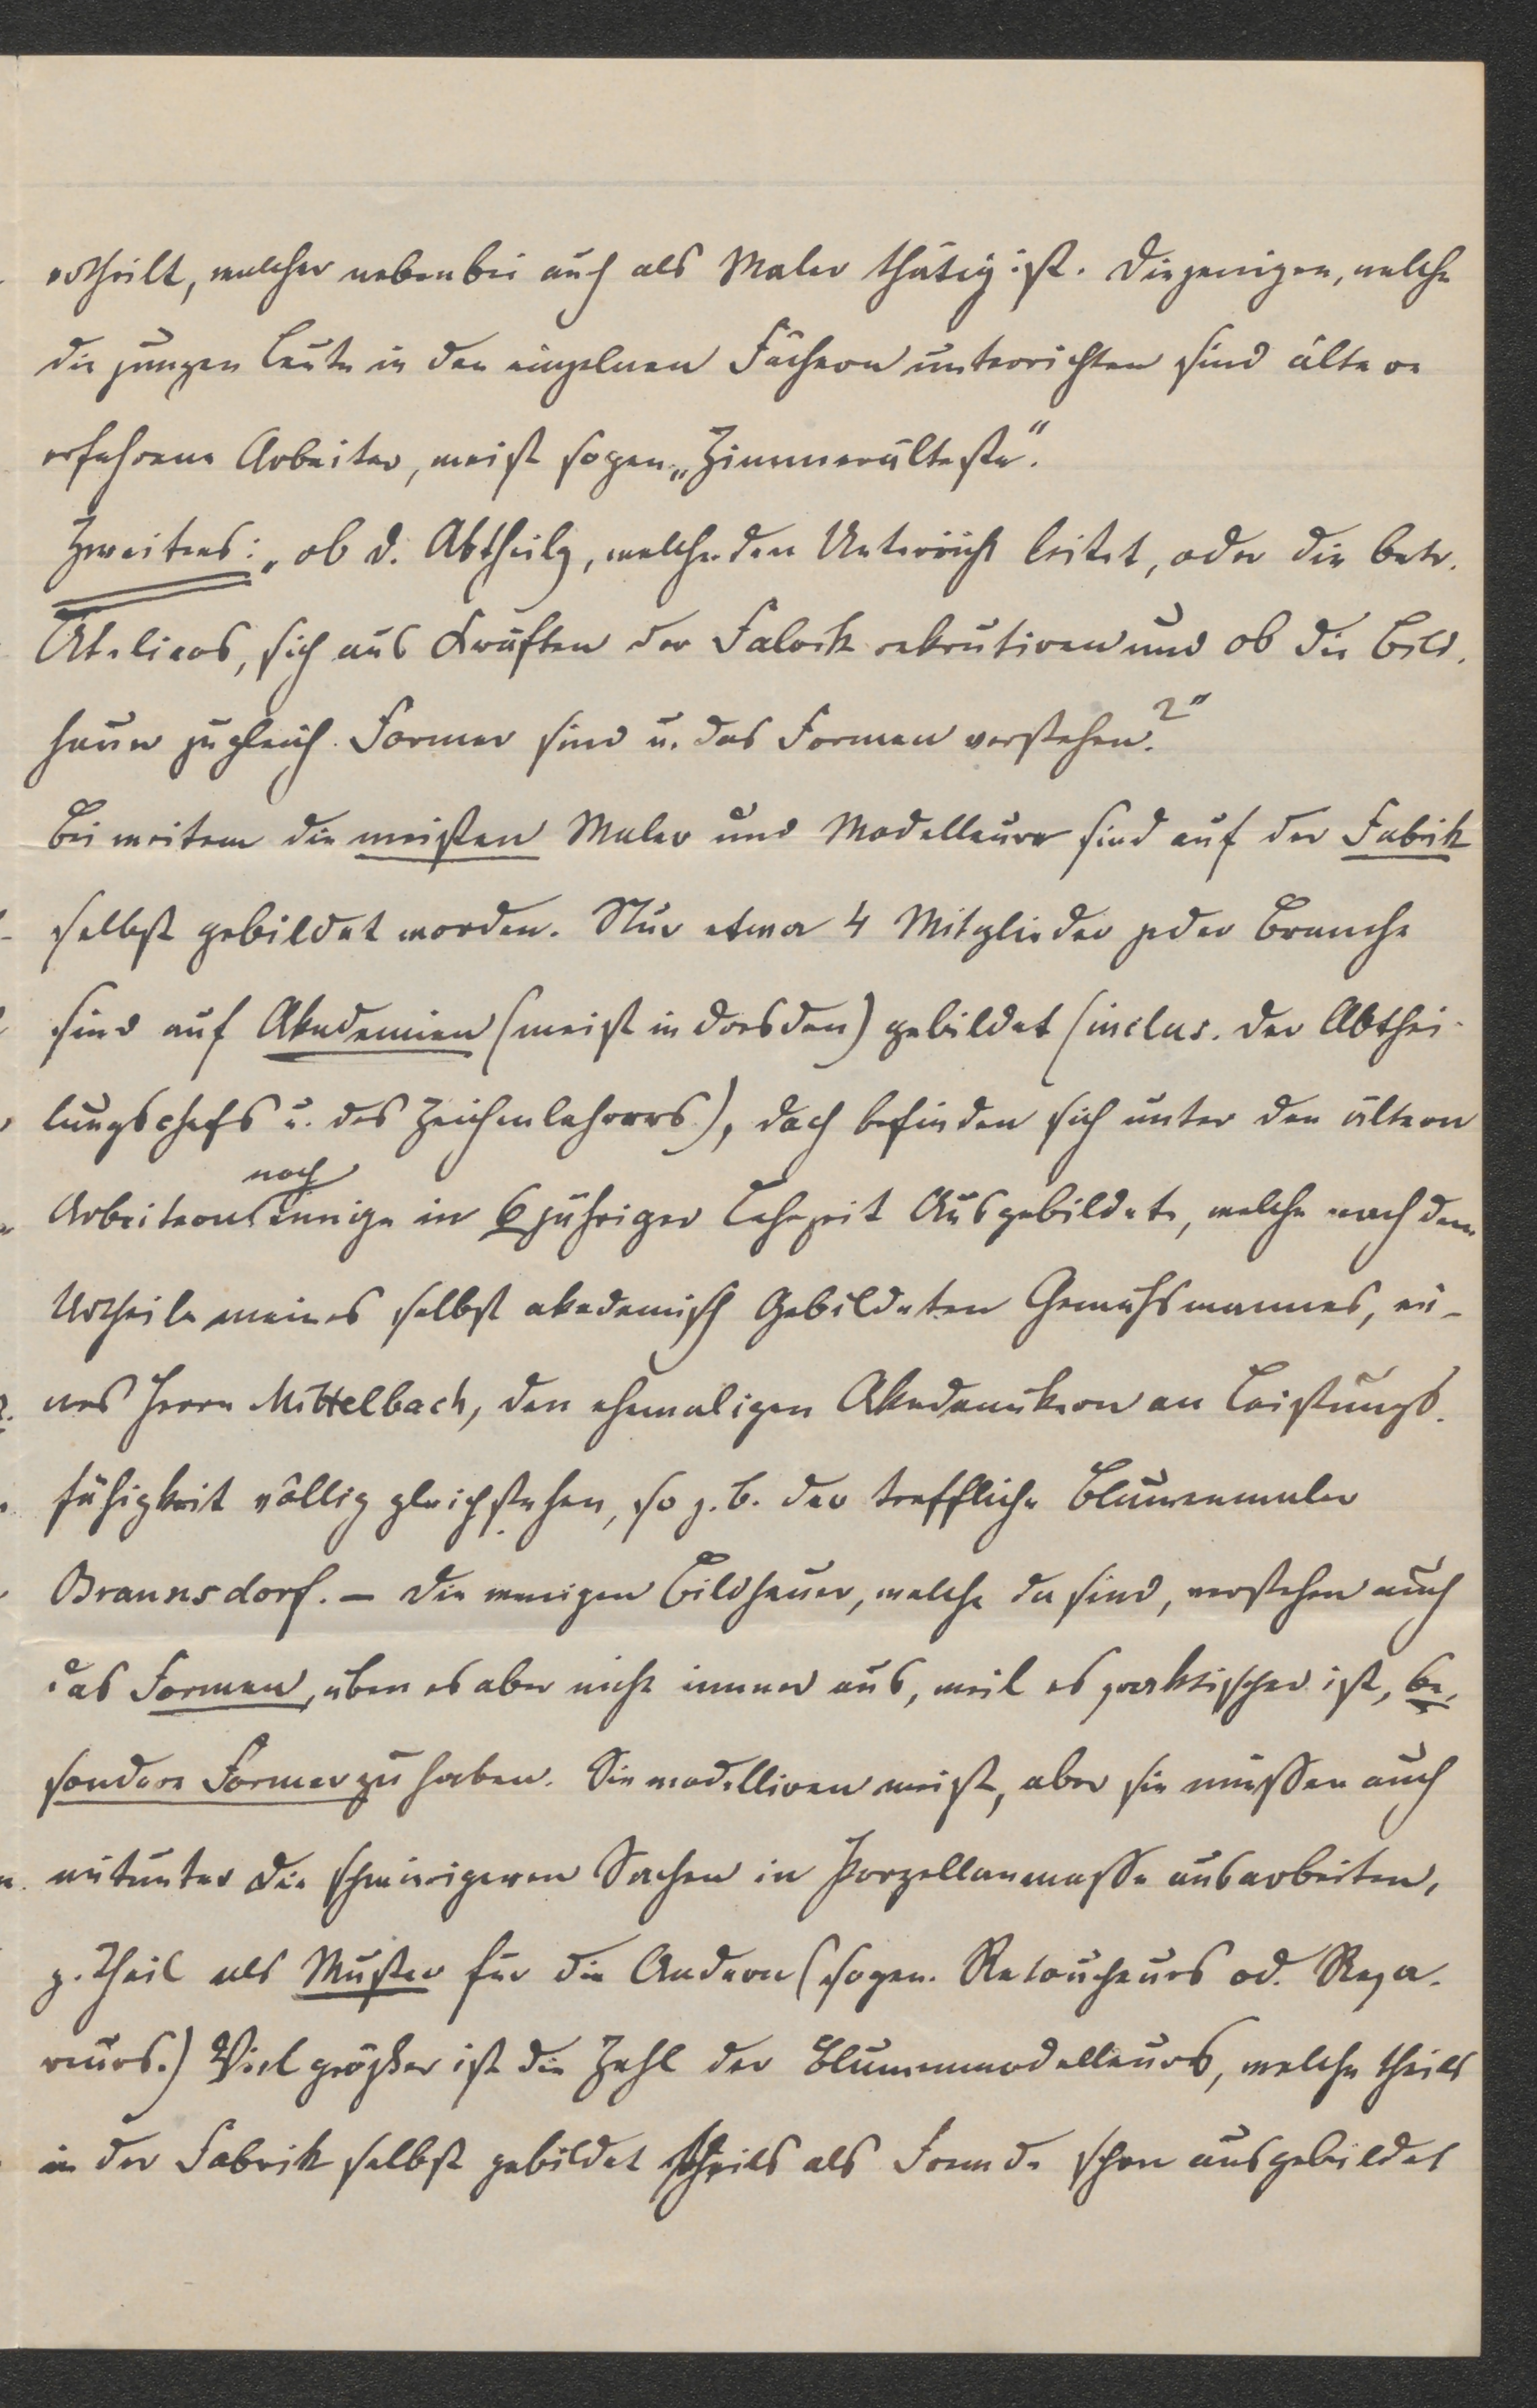 ertheilt, welcher nebenbei auch als Maler thätig ist. Diejenigen, welche
die jungen Leute in den einzelnen Fächern unterrichten sind ältere
erfahrene Arbeiter, meist sogen. „Zimmerälteste“.
Zweitens: „ob d. Abtheilg, welche den Unterricht leitet, oder die betr.
Ateliers, sich aus Kräften der Fabrik rekrutiren und ob die Bild-
hauer zugleich Former sind u. das Formen verstehen?“
Bei weitem die meisten Maler und Modelleure sind auf der Fabrik
selbst gebildet worden. Nur etwa 4 Mitglieder jeder Branche
sind auf Akademien (meist in Dresden) gebildet (inclus. der Abthei-
lungschefs u. des Zeichenlehrers), doch befinden sich unter den ältern
noch
Arbeitern einige in 6jähriger Lehrzeit Ausgebildete, welche nach dem
Urtheile meines selbst akademisch Gebildeten Gewährsmannes, ei-
nes Herrn Mittelbach, den ehemaligen Akademikern an Leistungs-
fähigkeit völlig gleichstehen, so z. B. der treffliche Blumenmaler
Braunsdorf. – Die wenigen Bildhauer, welche da sind, verstehen auch
das Formen, üben es aber nicht immer aus, weil es praktischer ist, be-
sondere Former zu haben. Sie modelliren meist, aber sie müssen auch
mitunter die schwierigeren Sachen in Porzellanmasse ausarbeiten,
z. Theil als Muster für die Andern (sogen. Retoucheurs od. Repa-
reurs.) Viel größer ist die Zahl der Blumenmodelleurs, welche theils
in der Fabrik selbst gebildet theils als Fremde schon ausgebildet